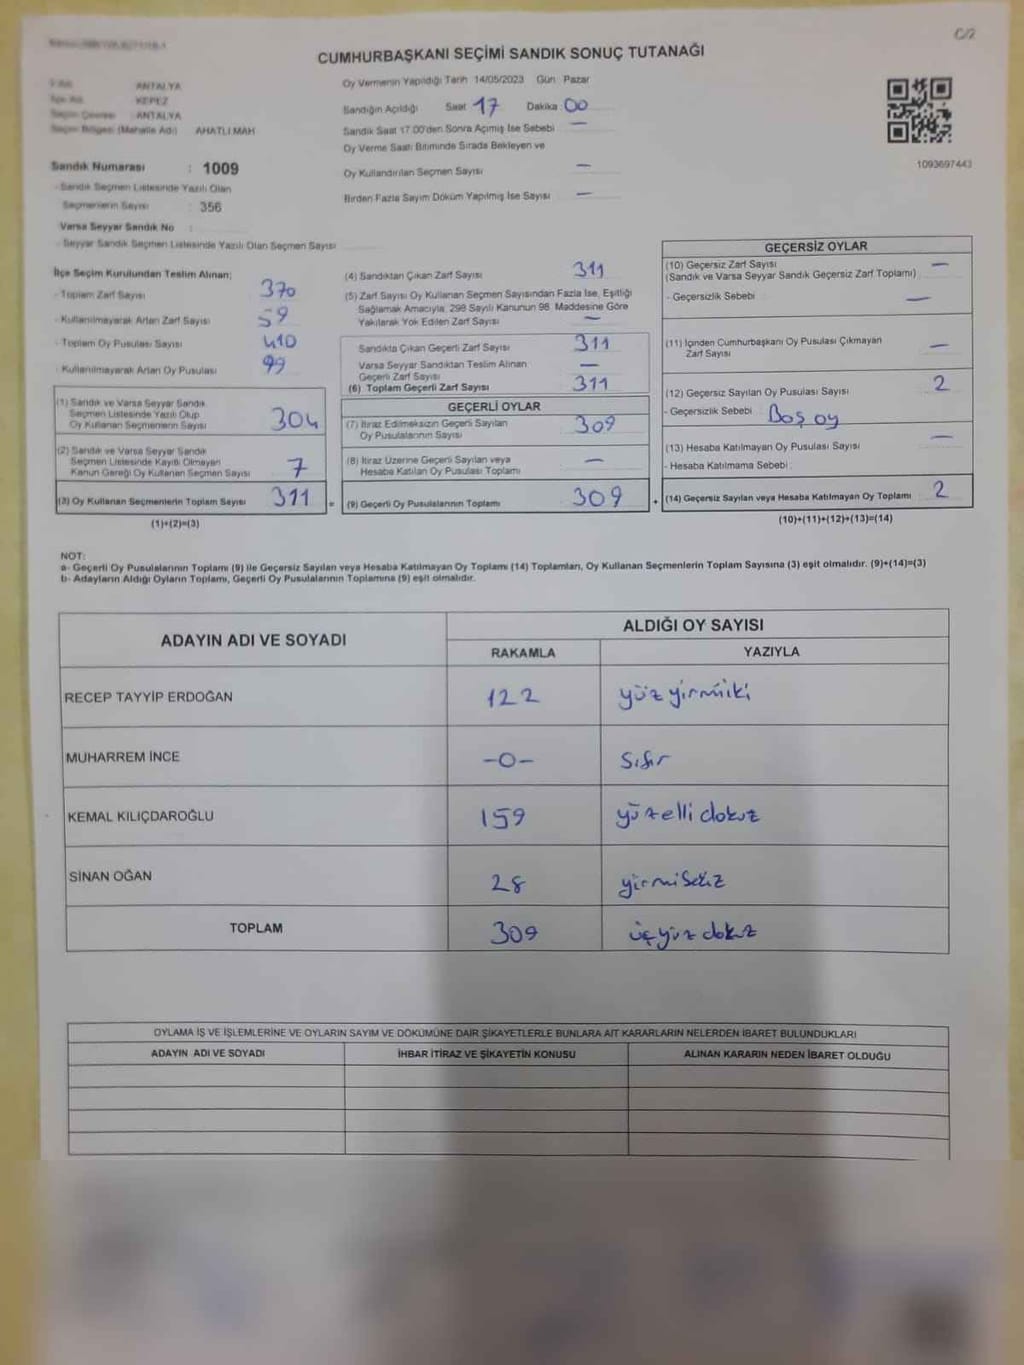 C/2
CUMHURBAŞKANI SEÇİMİ SANDIK SONUÇ TUTANAĞI
ANTALYA
KEPEZ
ANTALYA
Seçim Bölgesi (Mahalle Adı) AHATLI MAH
Oy Vermenin Yapıldığı Tarih 14/05/2023 Gün Pazar
Sandığın Açıldığı Saat 17 Dakika 00
Sandık Saat 17.00'den Sonra Açılmış İse Sebebi —
Oy Verme Saati Bitiminde Sırada Bekleyen ve
Oy Kullandırılan Seçmen Sayısı —
Birden Fazla Sayım Döküm Yapılmış İse Sayısı —
1093697443
Sandık Numarası : 1009
- Sandık Seçmen Listesinde Yazılı Olan
Seçmenlerin Sayısı : 356
Varsa Seyyar Sandık No :
- Seyyar Sandık Seçmen Listesinde Yazılı Olan Seçmen Sayısı
İlçe Seçim Kurulundan Teslim Alınan;
- Toplam Zarf Sayısı 370
- Kullanılmayarak Artan Zarf Sayısı 59
- Toplam Oy Pusulası Sayısı 410
- Kullanılmayarak Artan Oy Pusulası 99
(1) Sandık ve Varsa Seyyar Sandık
Seçmen Listesinde Yazılı Olup
Oy Kullanan Seçmenlerin Sayısı 304
(2) Sandık ve Varsa Seyyar Sandık
Seçmen Listesinde Kayıtlı Olmayan
Kanun Gereği Oy Kullanan Seçmen Sayısı 7
(3) Oy Kullanan Seçmenlerin Toplam Sayısı 311 =
(1)+(2)=(3)
(4) Sandıktan Çıkan Zarf Sayısı 311
(5) Zarf Sayısı Oy Kullanan Seçmen Sayısından Fazla İse, Eşitliği
Sağlamak Amacıyla, 298 Sayılı Kanunun 98. Maddesine Göre
Yakılarak Yok Edilen Zarf Sayısı —
Sandıkta Çıkan Geçerli Zarf Sayısı 311
Varsa Seyyar Sandıktan Teslim Alınan
Geçerli Zarf Sayısı —
(6) Toplam Geçerli Zarf Sayısı 311
GEÇERLİ OYLAR
(7) İtiraz Edilmeksizin Geçerli Sayılan
Oy Pusulalarının Sayısı 309
(8) İtiraz Üzerine Geçerli Sayılan veya
Hesaba Katılan Oy Pusulası Toplamı —
(9) Geçerli Oy Pusulalarının Toplamı 309 +
GEÇERSİZ OYLAR
(10) Geçersiz Zarf Sayısı —
(Sandık ve Varsa Seyyar Sandık Geçersiz Zarf Toplamı)
- Geçersizlik Sebebi —
(11) İçinden Cumhurbaşkanı Oy Pusulası Çıkmayan
Zarf Sayısı —
(12) Geçersiz Sayılan Oy Pusulası Sayısı 2
- Geçersizlik Sebebi : Boş oy
(13) Hesaba Katılmayan Oy Pusulası Sayısı —
- Hesaba Katılmama Sebebi :
(14) Geçersiz Sayılan veya Hesaba Katılmayan Oy Toplamı 2
(10)+(11)+(12)+(13)=(14)
NOT:
a- Geçerli Oy Pusulalarının Toplamı (9) ile Geçersiz Sayılan veya Hesaba Katılmayan Oy Toplamı (14) Toplamları, Oy Kullanan Seçmenlerin Toplam Sayısına (3) eşit olmalıdır. (9)+(14)=(3)
b- Adayların Aldığı Oyların Toplamı, Geçerli Oy Pusulalarının Toplamına (9) eşit olmalıdır.
ADAYIN ADI VE SOYADI
ALDIĞI OY SAYISI
RAKAMLA YAZIYLA
RECEP TAYYİP ERDOĞAN 122 yüzyirmiiki
MUHARREM İNCE -0- sıfır
KEMAL KILIÇDAROĞLU 159 yüzellidokuz
SİNAN OĞAN 28 yirmisekiz
TOPLAM 309 üçyüzdokuz
OYLAMA İŞ VE İŞLEMLERİNE VE OYLARIN SAYIM VE DÖKÜMÜNE DAİR ŞİKAYETLERLE BUNLARA AİT KARARLARIN NELERDEN İBARET BULUNDUKLARI
ADAYIN ADI VE SOYADI İHBAR İTİRAZ VE ŞİKAYETİN KONUSU ALINAN KARARIN NEDEN İBARET OLDUĞU